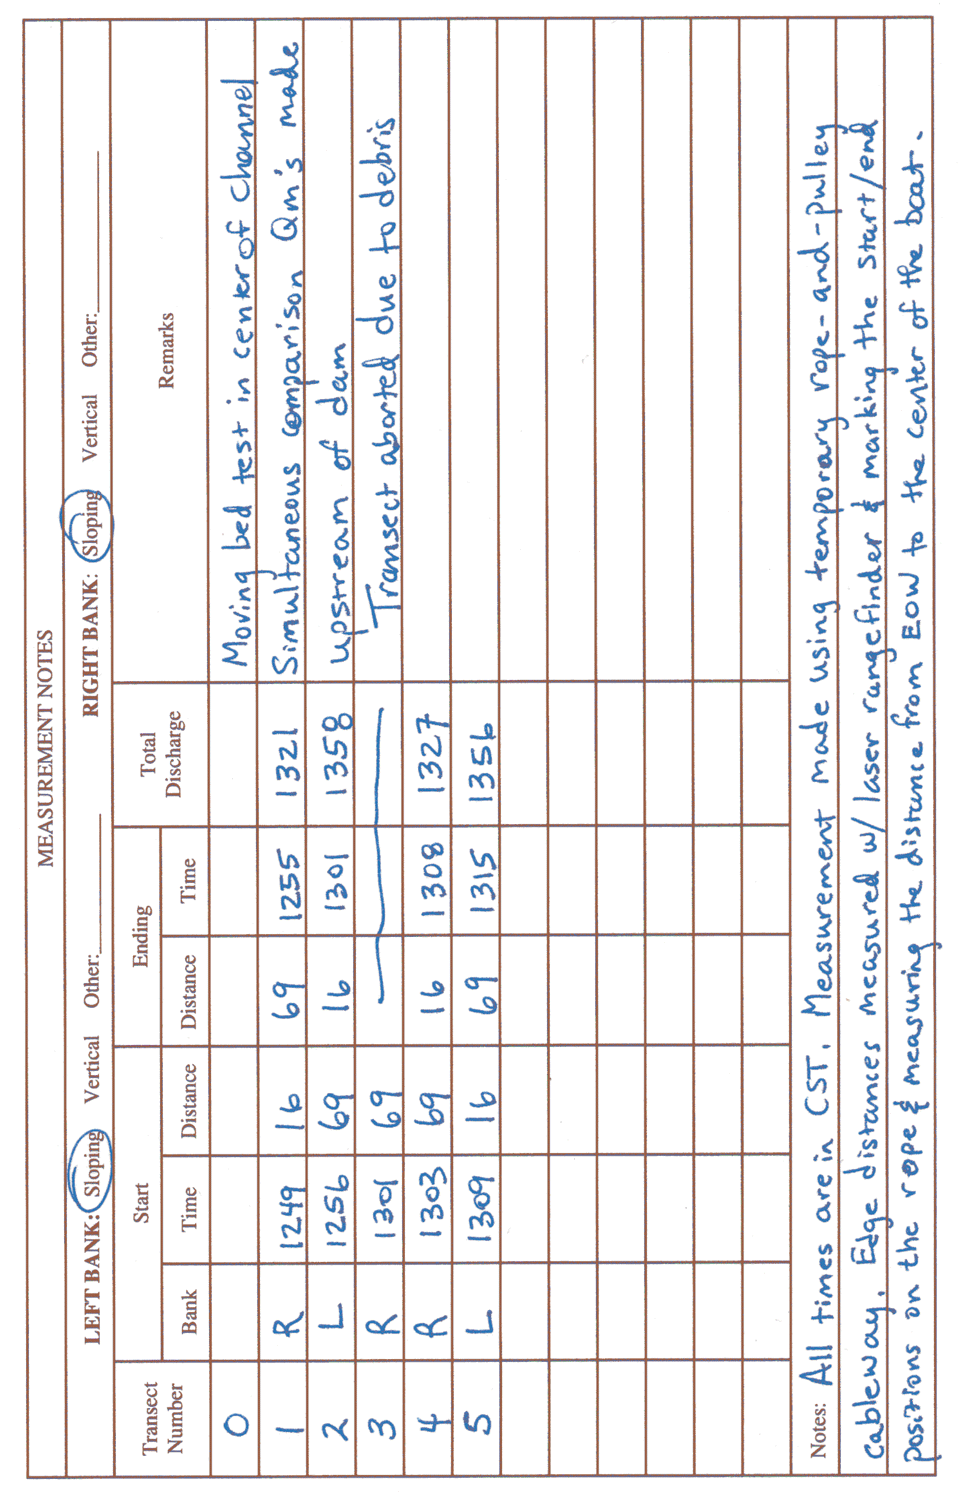 MEASUREMENT NOTES
LEFT BANK: Sloping Vertical Other: RIGHT BANK: Sloping Vertical Other:
Transect Number Start Ending Total Discharge Remarks
Bank Time Distance Distance Time
0 Moving bed test in center of channel
1 R 1249 16 69 1255 1321 Simultaneous comparison Qm's made
2 L 1256 69 16 1301 1358 upstream of dam
3 R 1301 69 Transect aborted due to debris
4 R 1303 69 16 1308 1327
5 L 1309 16 69 1315 1356
Notes: All times are in CST. Measurement made using temporary rope-and-pulley
cableway. Edge distances measured w/ laser rangefinder & marking the start/end
positions on the rope & measuring the distance from EOW to the center of the boat.